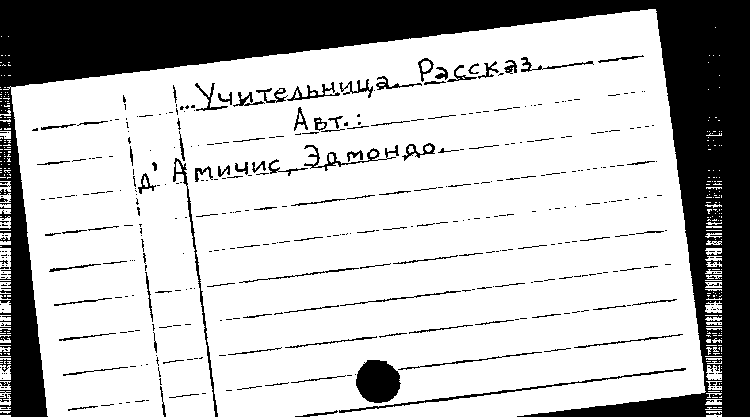 ...Учительница. Рассказ.
Авт.:
д'Амичис, Эдмондо.